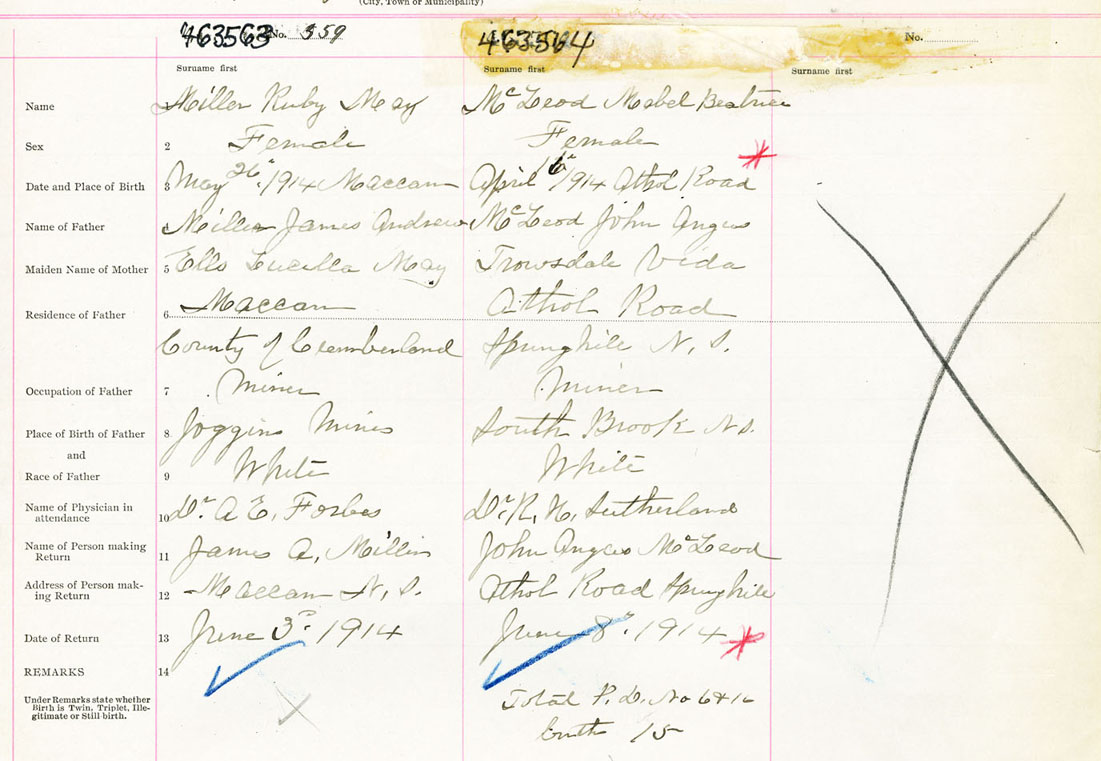 (City, Town or Municipality)
463563 No. 359 463564 No.
Surname first Surname first Surname first
Name Miller Ruby May McLeod Mabel Beatrice
Sex 2 Female Female
Date and Place of Birth 3 May 26" 1914 Maccan April 16" 1914 Athol Road
Name of Father 4 Miller James Andrew McLeod John Angus
Maiden Name of Mother 5 Ells Lucilla May Trowsdale Vida
Residence of Father 6 Maccan Athol Road
County of Cumberland Springhill N.S.
Occupation of Father 7 Miner Miner
Place of Birth of Father 8 Joggins Mines South Brook N.S.
and
Race of Father 9 White White
Name of Physician in
attendance 10 Dr. A E. Forbes Dr. R. N. Sutherland
Name of Person making
Return 11 James A. Miller John Angus McLeod
Address of Person mak-
ing Return 12 Maccan N.S. Athol Road Springhill
Date of Return 13 June 3rd. 1914 June 8". 1914
REMARKS 14
Under Remarks state whether
Birth is Twin, Triplet, Ille-
gitimate or Still birth.
Total P. D. No 6 & 16
15